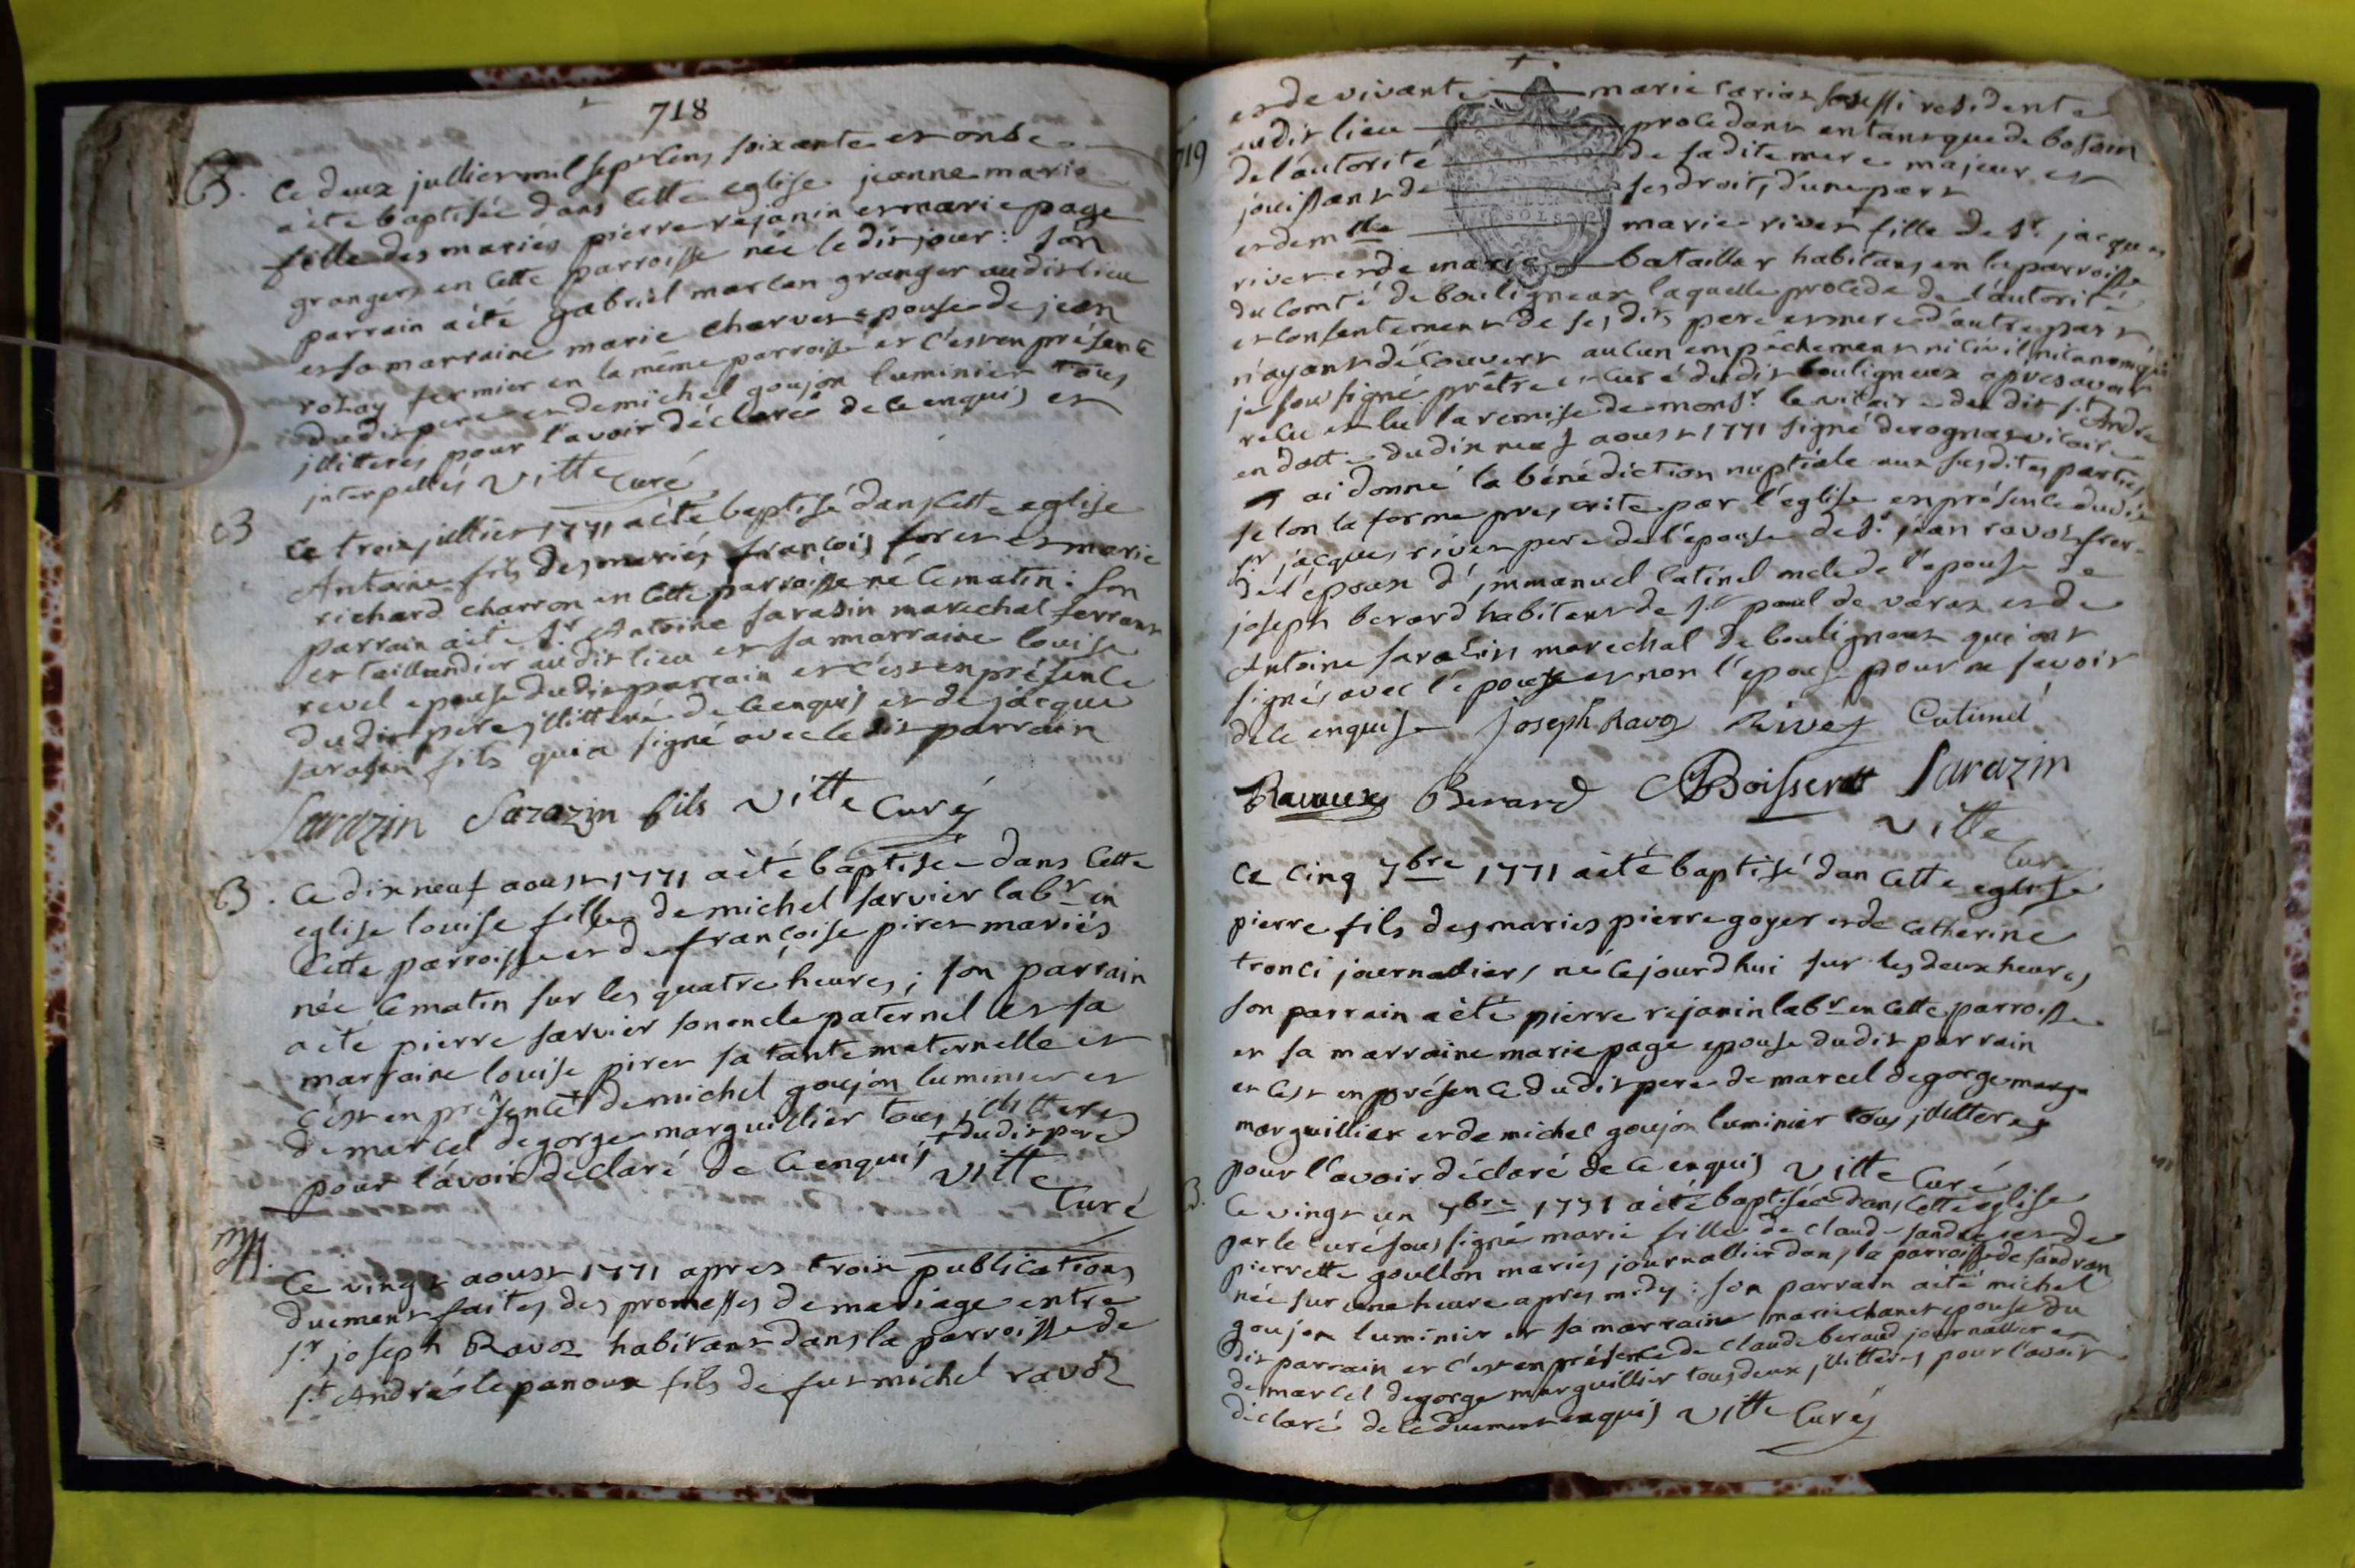 718
B. Ce deux jullier mil sept cens soixante et onse
a été baptisée dans cette eglise jeanne marie
fille des mariés pierre rejanin et marie page
grangers en cette parroisse née ledit jour : son
parrain a été gabriel marlan granger audit lieu
et sa marraine marie charvet epouse de jean
rosay fermier en la même parroisse et c'est en présence
dudit pere et de michel goujon luminier tous
jllitteres pour l'avoir déclaré de ce enquis et
interpellés Vitte Curé
B Ce trois jullier 1771 a été baptisé dans cette eglise
Antoine fils des mariés françois foret et marie
richard charron en cette parroisse né ce matin : son
parrain a été Sr. Antoine sarasin marechal ferrant
et taillandier audit lieu et sa marraine louise
revel epouse dudit parrain et c'est en présence
dudit pere jllitteré de ce enquis et de jacque
sarasin fils qui a signé avec ledit parrain
Sarazin Sarazin fils Vitte Curé
B. Ce dix neuf aoust 1771 a été baptisée dans cette
eglise louise fille de michel sarvier labr en
cette parroisse et de françoise piret mariés
née ce matin sur les quatre heures ; son parrain
a été pierre sarvier son oncle paternel et sa
marraine louise piret sa tante maternelle et
c'est en présence + de michel goujon luminier et
de marcel degorge marguillier tous jllitteres
pour l'avoir déclaré de ce enquis + dudit pere
Vitte
Curé
M. Ce vingt aoust 1771 apres trois publications
duement faites des promesses de mariage entre
Sr. joseph Ravoz habitant dans la parroisse de
St. André le panoux fils de fut michel ravoz
719
et de vivante marie lariat aussi residente
audit lieu procedant en tant que de besoin
de l'autorité de sadite mere majeur et
jouissant de ses droits d'une part
et demlle marie rivet fille de Sr. jacques
rivet et de marie batailler habitans en la parroisse
du comté de bouligneux laquelle procede de l'autorité
et consentement de ses dits pere et mere d'autre part
n'ayant découvert aucun empêchement ni civil ni canonique
je soussigné prêtre et curé dudit bouligneux apres avoir
relu et lu la remise de monsr. le vicaire dudit St. André
en datte du dix neuf aoust 1771 signé derognat vicaire
ai donné la bénédiction nuptiale aux susdites parties
selon la forme prescrite par l'eglise en présence dudit
Sr jacques rivet pere de l'épouse de Sr. jean ravoz frere
de l'époux d'jmmanuel catinel oncle de l'epouse de
joseph berard habitant de St paul de varax et de
Antoine sarasin marechal de bouligneux qui ont
signés avec l'epoux et non l'epouse pour ne savoir
de ce enquise Joseph Ravoz Rivet Catinel
Ravoux Berard Boisserat Sarazin
Vitte
Curé
Ce cinq 7bre 1771 a été baptisé dan cette eglise
pierre fils des mariés pierre goyet et de Catherine
tronci journalliers né ce jourd'hui sur les deux heures
son parrain a été pierre rejanin labr en cette parroisse
et sa marraine marie page epouse dudit parrain
et c'est en présence dudit pere de marcel degorge marg
marguillier et de michel goujon luminier tous jllitteres
pour l'avoir déclaré de ce enquis Vitte Curé
B. Ce vingt un 7bre 1771 a été baptisée dans cette eglise
par le curé soussigné marie fille de claude sandre et de
pierrette goullon mariés journalliers dans la parroisse de sandran
née sur une heure apres midy : son parrain a été michel
goujon luminier et sa marraine marie chanet epouse du
dit parrain et c'est en présence de claude beraud journallier et
de marcel degorge marguillier tous deux jllitteres pour l'avoir
déclaré de ce duement enquis Vitte Curé